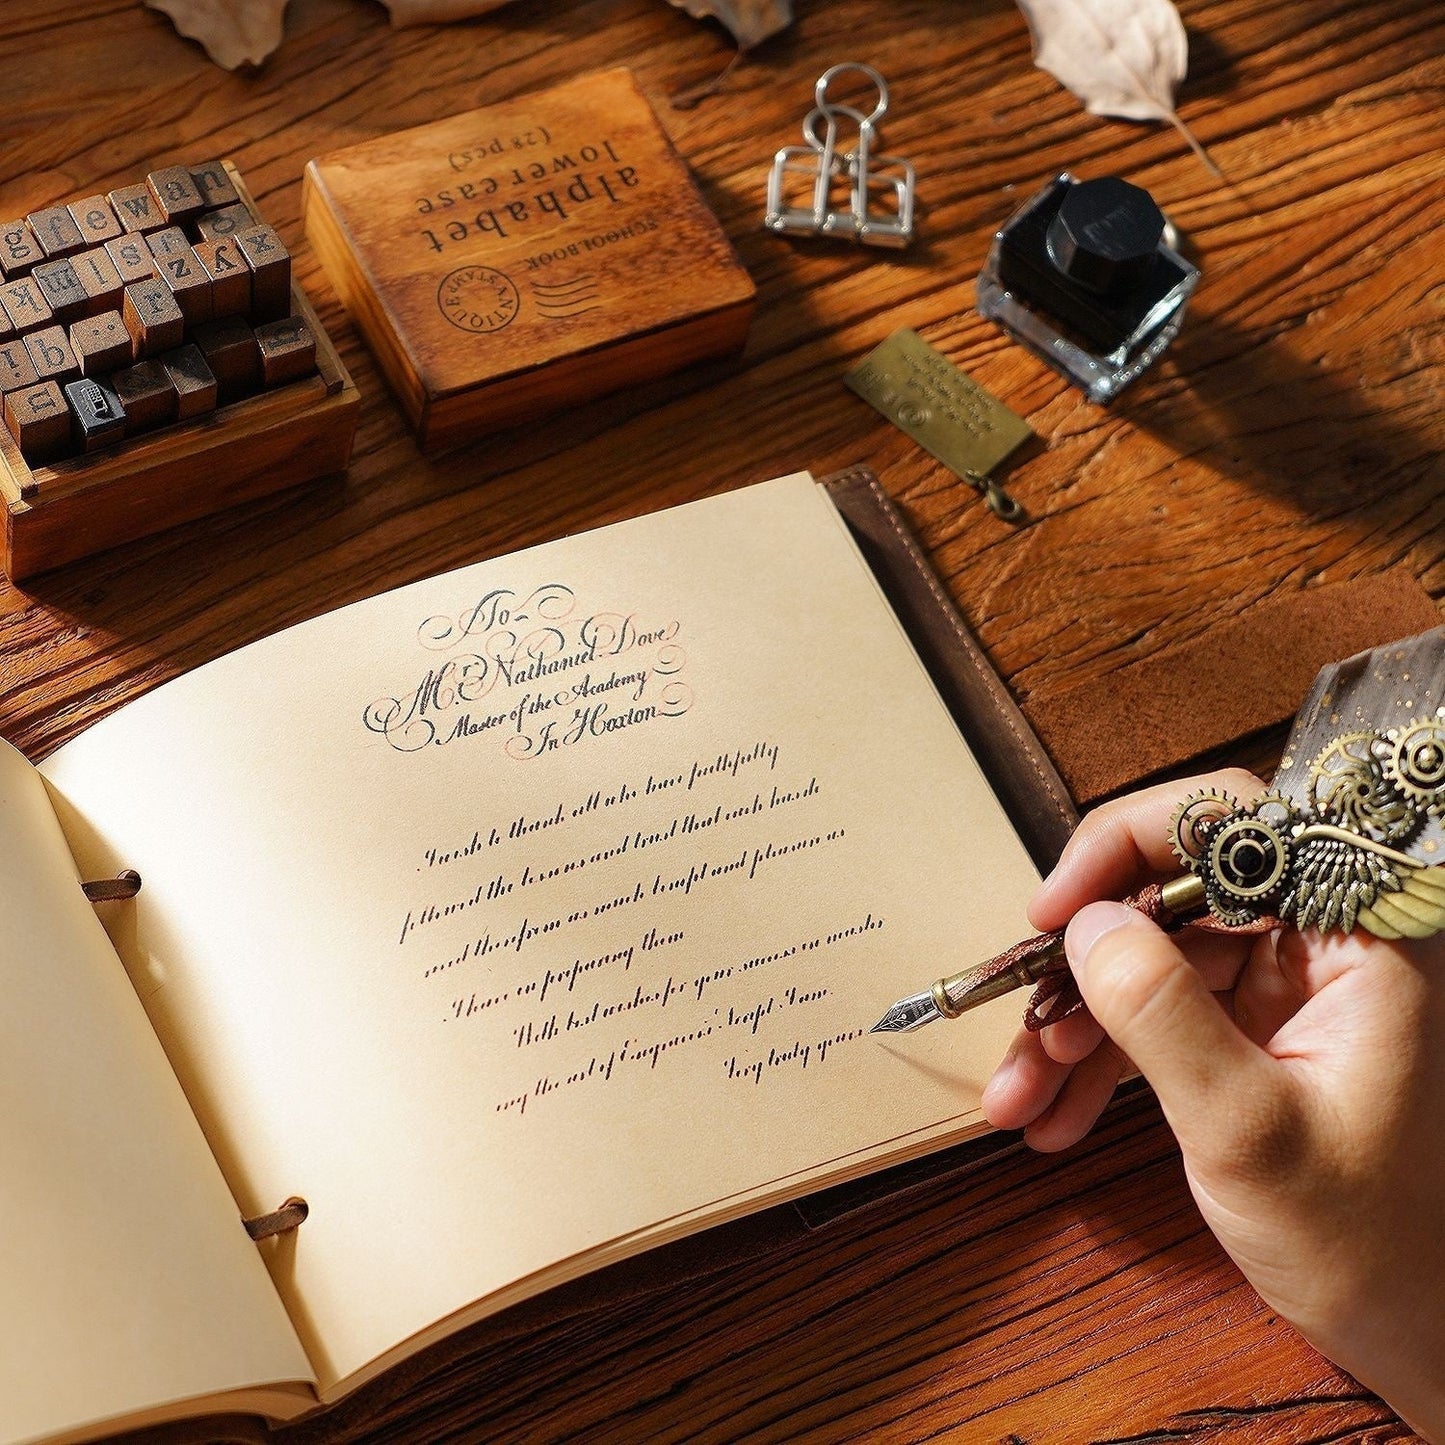 To
Mr. Nathaniel Dove
Master of the Academy
In Hoxton
I wish to thank all who have faithfully
followed the lessons and trust that each hassh
therefrom as much and pleasure as
I have in preparing them
With best wishes for your success in
the art of Engravers' Script I am
Very truly yours
alphabet
lower case
(28 pcs)
SCHOOLBOOK
ANTIQUE STAMP
g f e w a n
k m l s f o
z y x
r
i q b
u